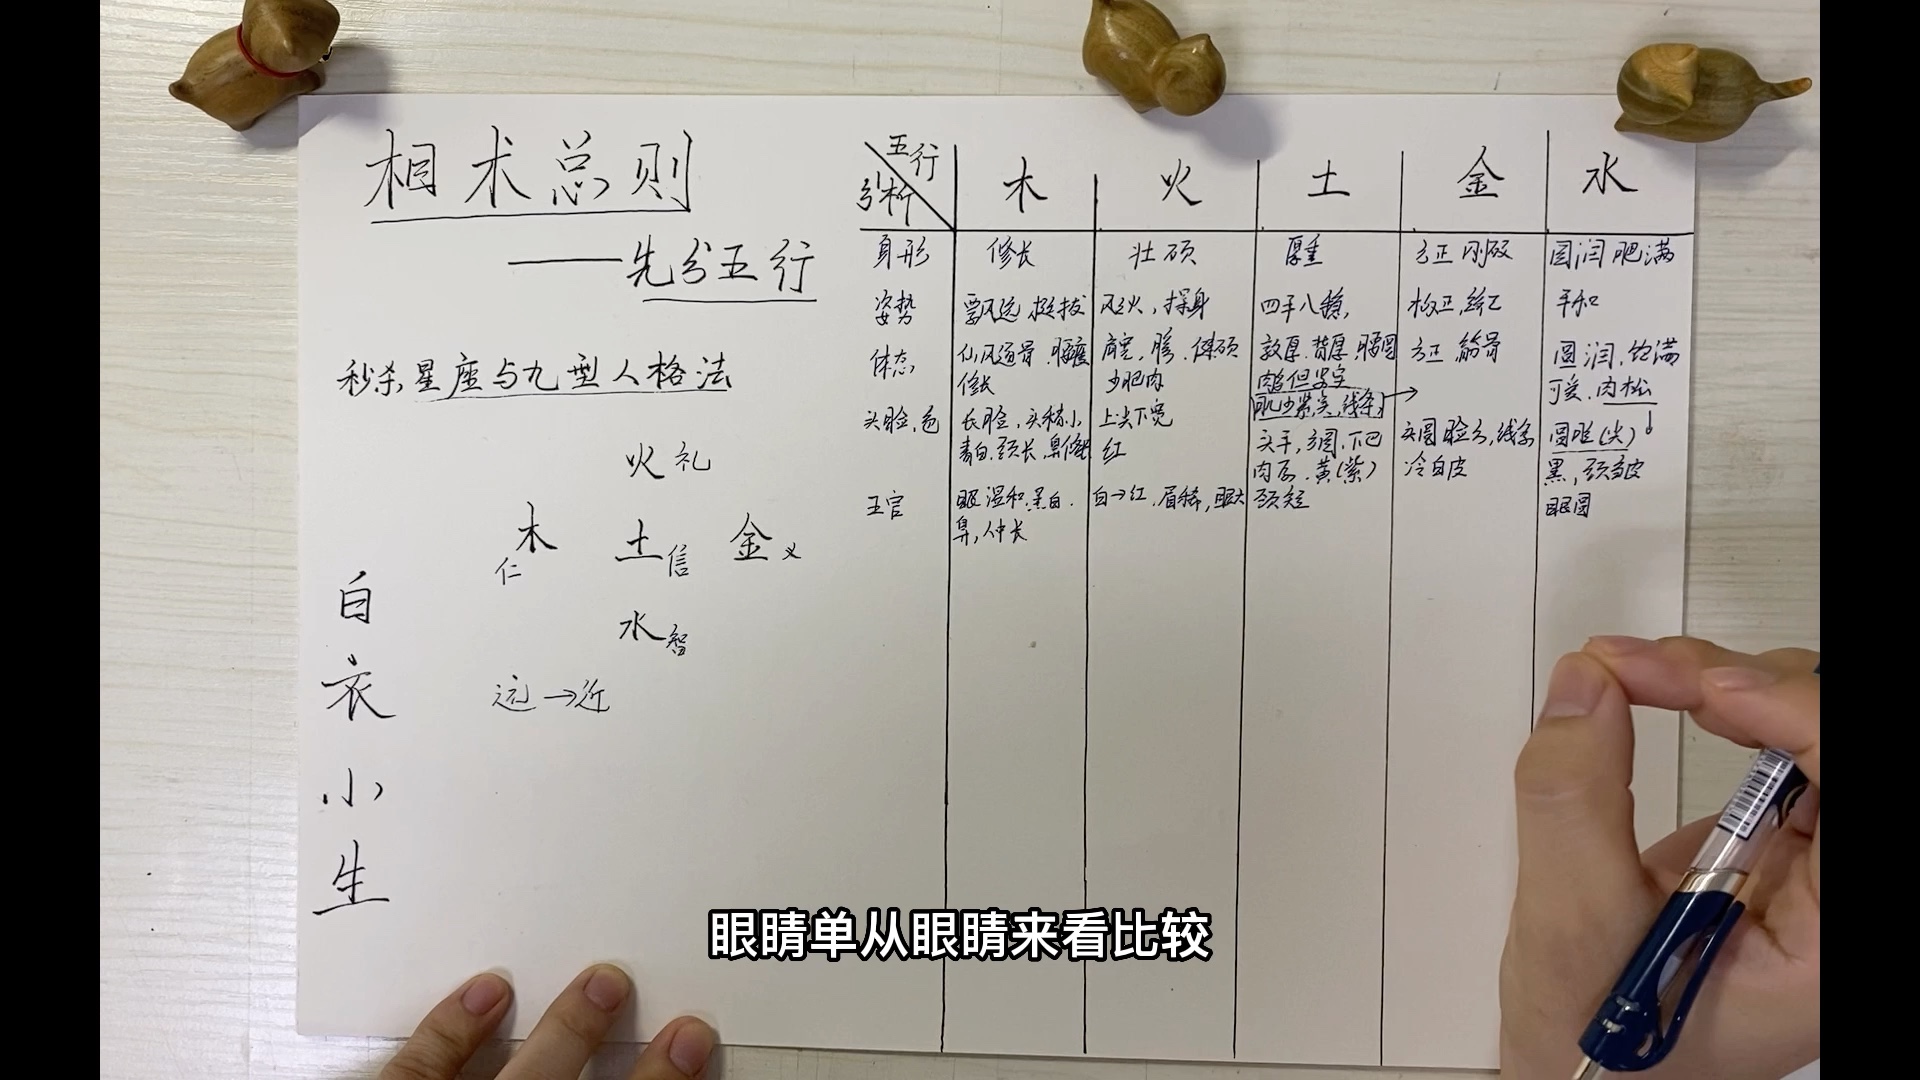 相术总则
——先分五行
秒杀,星座与九型人格法
火礼
木仁 土信 金义
水智
远→近
白衣小生
五行
木 火 土 金 水
身形 修长 壮硕 厚重 方正 刚硬 圆润肥满
姿势 飘逸,挺拔 风火,探身 四平八稳, 板正, 平和
体态 仙风道骨.腰瘦 肩宽, 健硕 敦厚.背厚.腰圆 方正,筋骨 圆润.饱满
修长 少肥肉 肉多但坚实 可爱.肉松
肌少紧实,线条→
头脸,色 长脸,头稍小, 上尖下宽 头平,方圆.下巴 头圆脸方,线条 圆唯(尖)
青白.颈长,鼻修长 红 肉厚.黄(紫) 冷白皮 黑,颈多皮
五官 眼温和.黑白. 白→红.眉稀,眼大 颈短 眼圆
鼻,人中长
眼睛单从眼睛来看比较